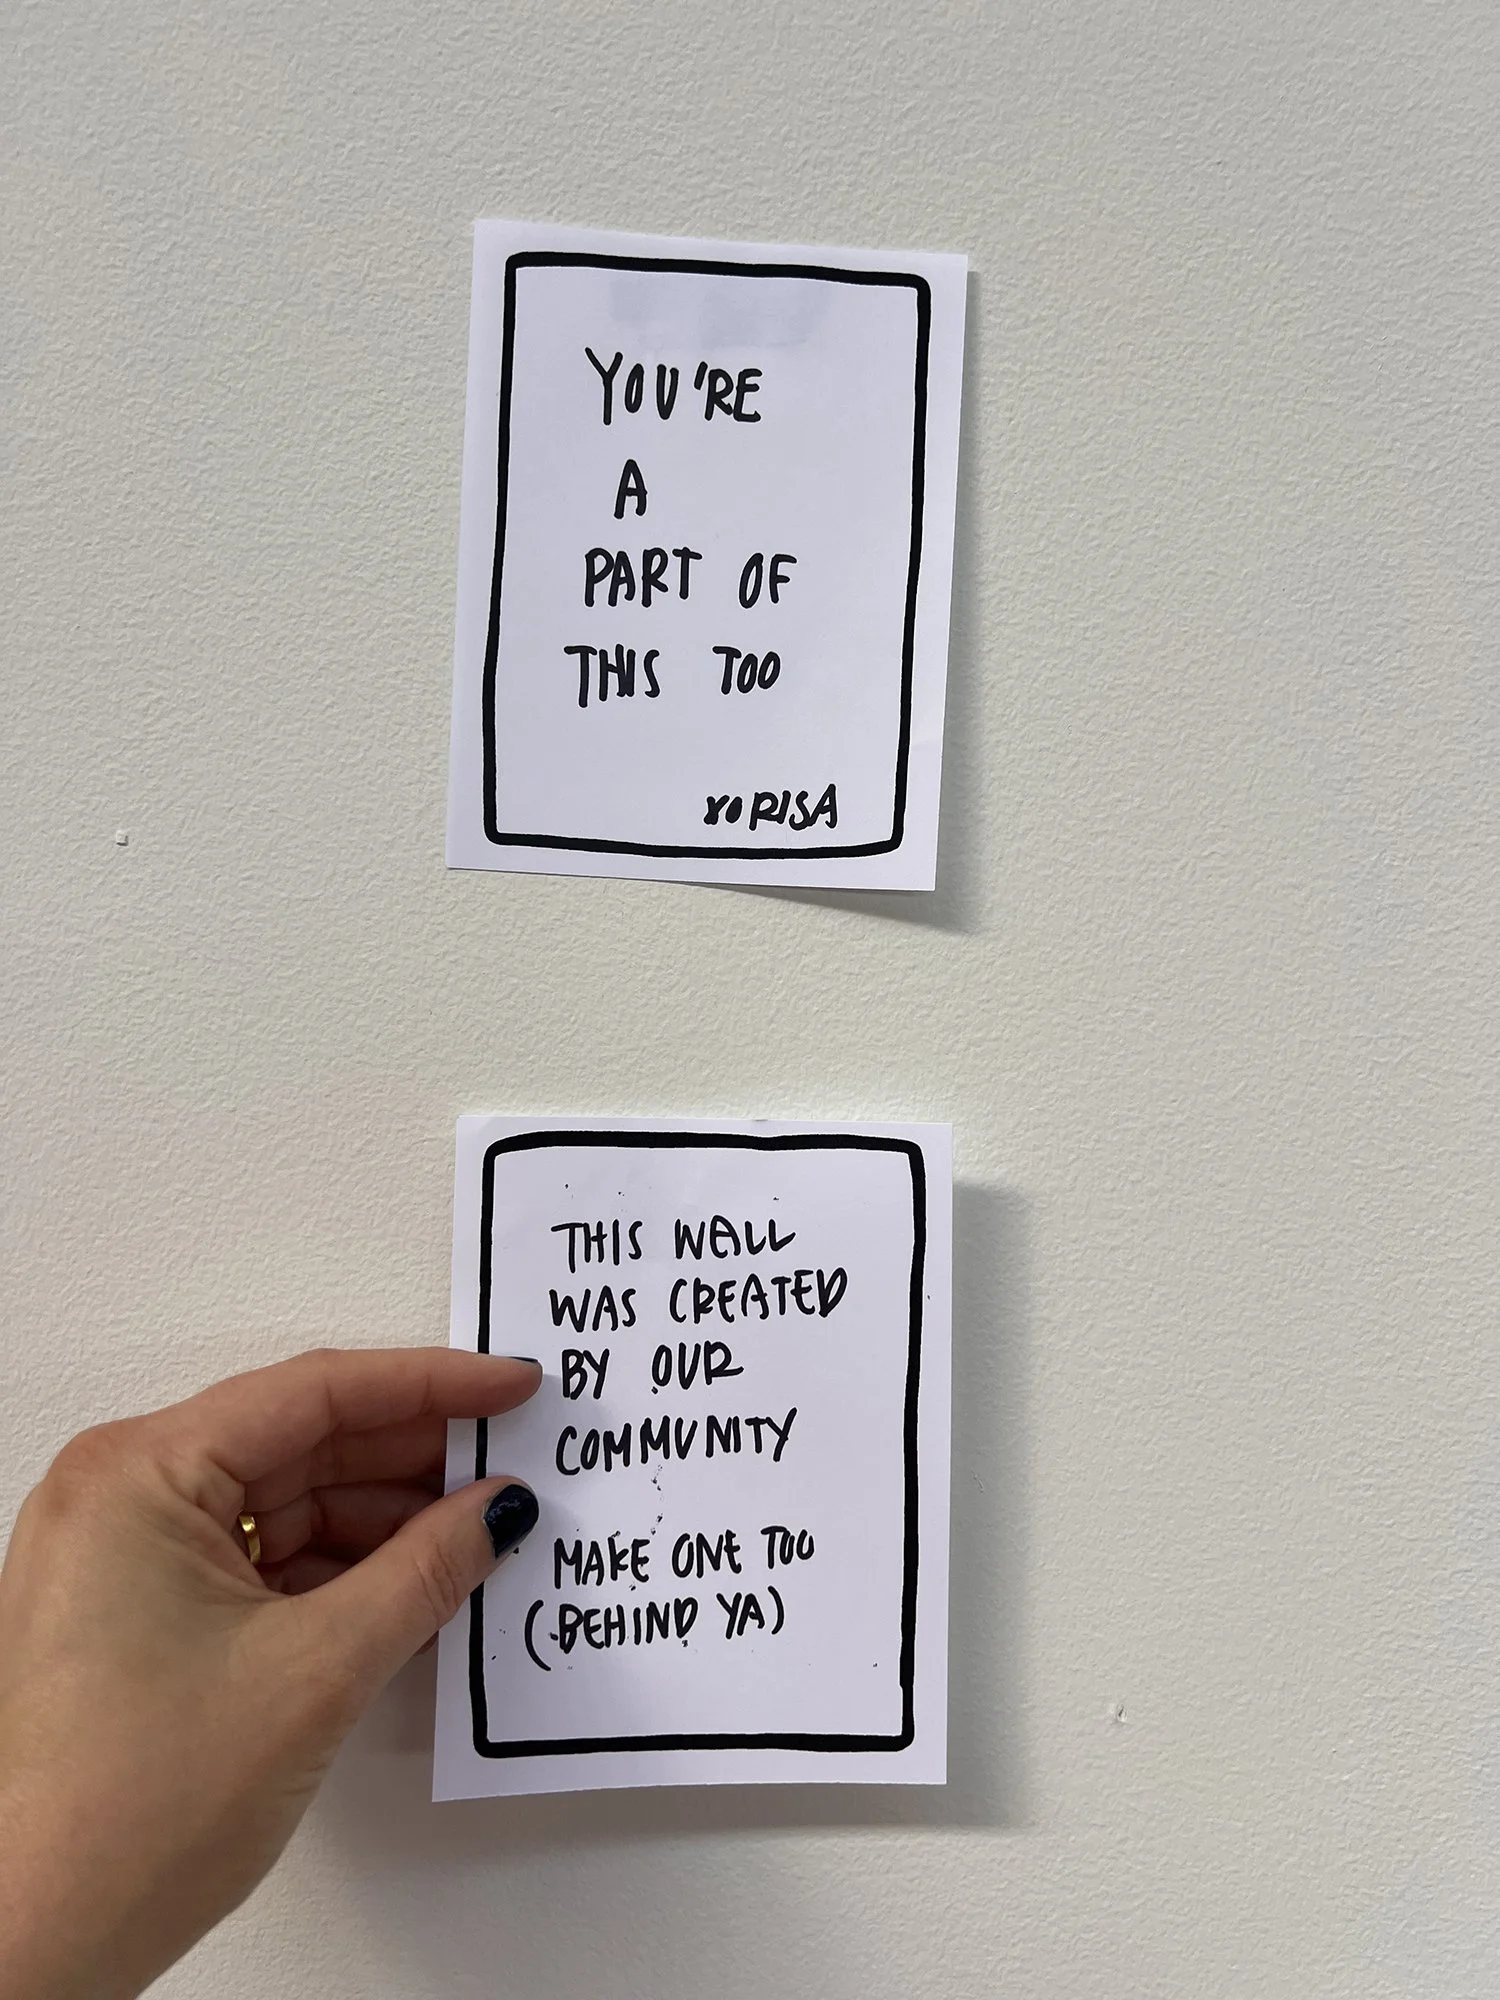 YOU'RE
A
PART OF
THIS TOO
XO RISA
THIS WALL
WAS CREATED
BY OUR
COMMUNITY
MAKE ONE TOO
(BEHIND YA)